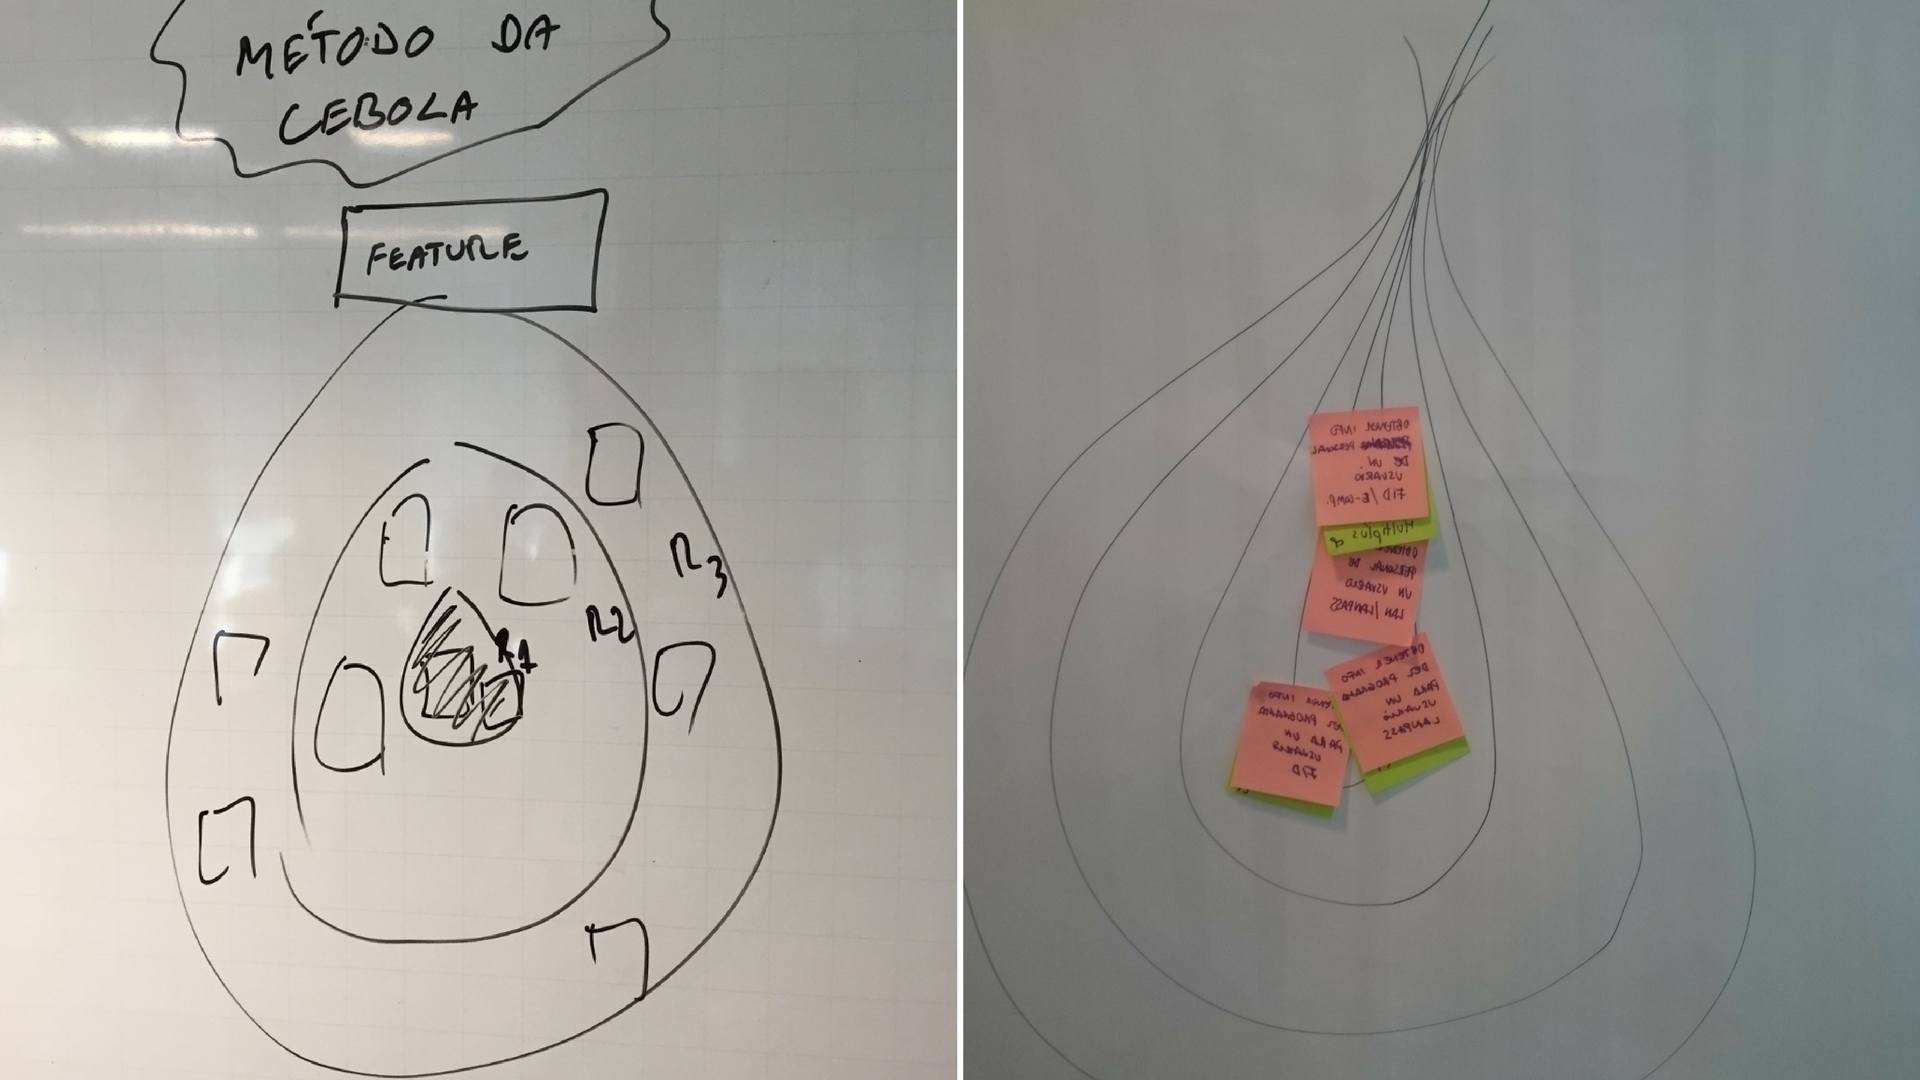 MÉTODO DA
CEBOLA
FEATURE
R3
R2
R1
OBTENER INFO
PERSONAL
DE UN
USUARIO
FID / E-COMP.
MULTIPLUS
OBTENER
PERSONAL DE
UN USUARIO
LAN/LANPASS
OBTENER INFO
DEL PROGRAMA
PARA UN
USUARIO
LANPASS
INFO
DEL PROGRAMA
PARA UN
USUARIO
FID